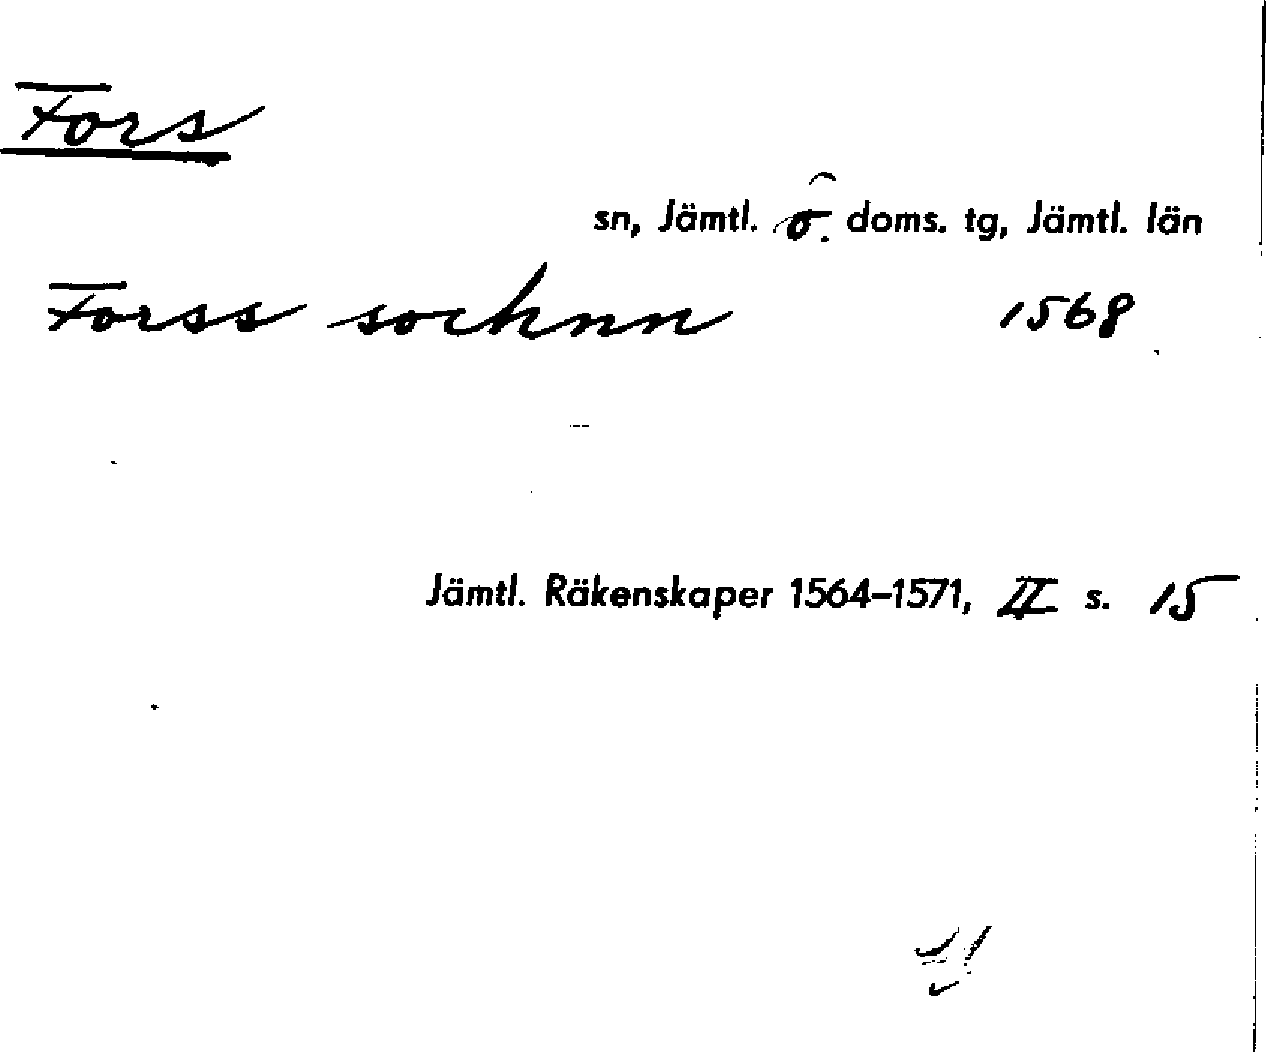 Fors
sn, Jämtl. ö. doms. tg, Jämtl. län
Forss sochnn 1568
Jämtl. Räkenskaper 1564–1571, II s. 15